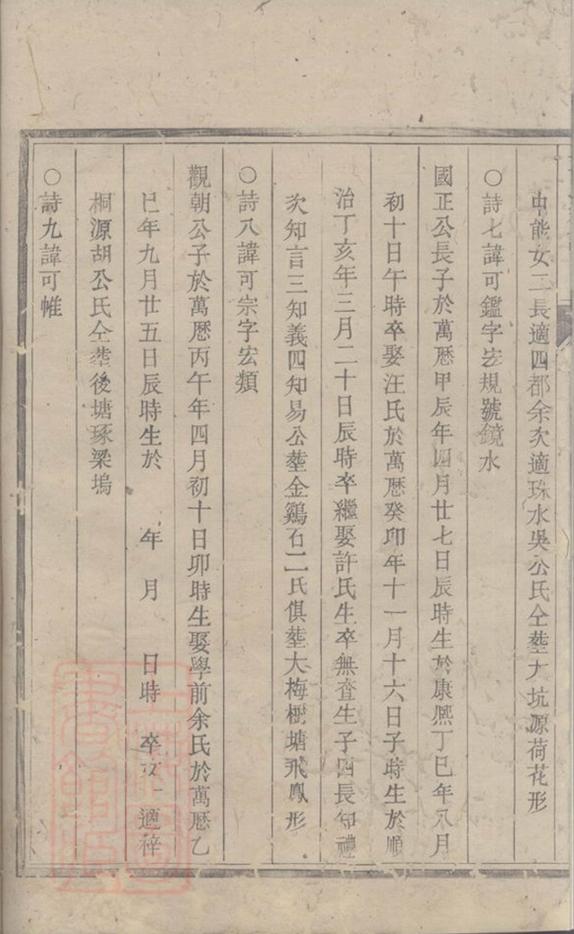 中能女三長適四都余次適珠水吳公氏仝塟大坑源荷花形
○詩七諱可鑑字宏規號鏡水
國正公長子於萬曆甲辰年四月廿七日辰時生於康熙丁巳年八月
初十日午時卒娶汪氏於萬曆癸卯年十一月十六日子時生於順
治丁亥年三月二十日辰時卒繼娶許氏生卒無查生子四長知禮
次知言三知義四知易公塟金鷄石二氏俱塟大梅樹塘飛鳳形
○詩八諱可宗字宏類
觀朝公子於萬曆丙午年四月初十日卯時生娶學前余氏於萬曆乙
巳年九月廿五日辰時生於　年　月　日時　卒女一適梓
桐源胡公氏仝塟後塘琢梁塢
○詩九諱可帷